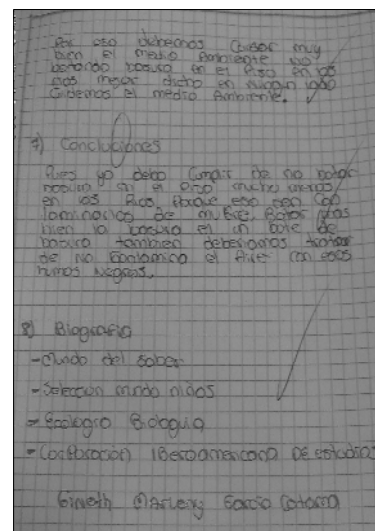 Por eso debemos Cuidar muy
bien el medio Ambiente no
botando basura en el Piso en los
rios mejor dicho en ningun lado
Cuidemos el medio Ambiente.
7) Concluciones
Pues yo debo Cumplir de no botar
basura en el Piso mucho menos
en los Rios. Porque eso sen Con
taminarios de muerte, Botar mas
bien la basura en un bote de
basura tambien deberiamos tratar
de no Contamina el Aire con esos
humos Negros.
8) Biografia
- Mundo del Saber
- Seleccion mundo niños
- Ecologia Biologuia
- Corporación Iberoamericana De estudios
Gineth Marleny Garcia